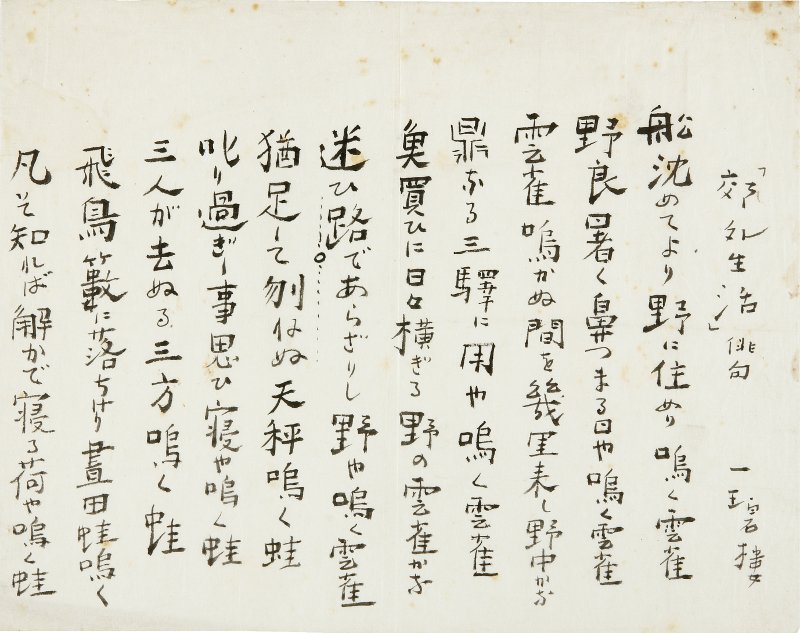 「郊外生活」俳句　一碧楼
船沈めてより野に住めり鳴く雲雀
野良暑く鼻つまる日や鳴く雲雀
雲雀鳴かぬ間を幾里来し野中かな
鼎なる三驛に用や鳴く雲雀
魚買ひに日々横ぎる野の雲雀かな
迷ひ路であらざりし野や鳴く雲雀
猶足して刎ねぬ天秤鳴く蛙
叱り過ぎし事思ひ寝や鳴く蛙
三人が去ぬる三方鳴く蛙
飛鳥籔に落ちけり晝田蛙鳴く
凡そ知れば解かで寝る荷や鳴く蛙